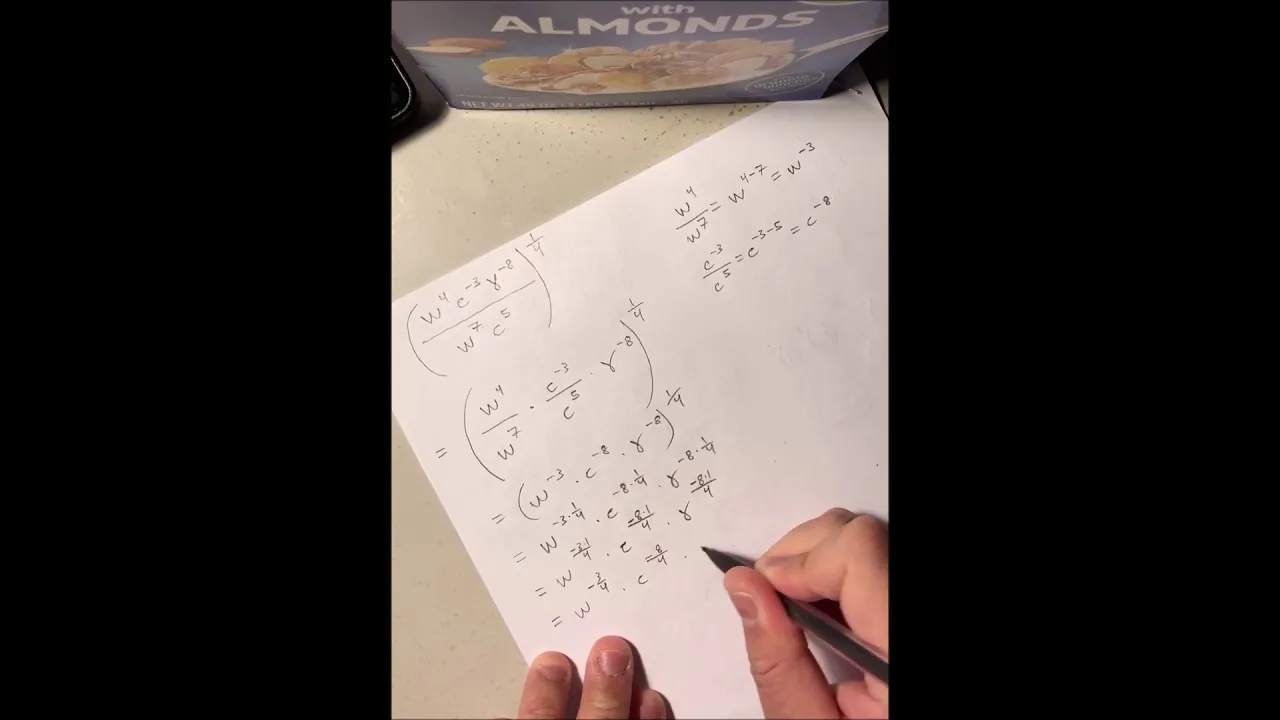 with
ALMONDS
w^4/w^7 = w^{4-7} = w^{-3}
c^{-3}/c^5 = c^{-3-5} = c^{-8}
(w^4 c^{-3} r^{-8} / w^7 c^5)^{1/4}
= (w^4/w^7 · c^{-3}/c^5 · r^{-8})^{1/4}
= (w^{-3} · c^{-8} · r^{-8})^{1/4}
= w^{-3·1/4} · c^{-8·1/4} · r^{-8·1/4}
= w^{-3·1/4} · c^{-8·1/4} · r^{-8·1/4}
= w^{-3/4} · c^{-8/4} ·